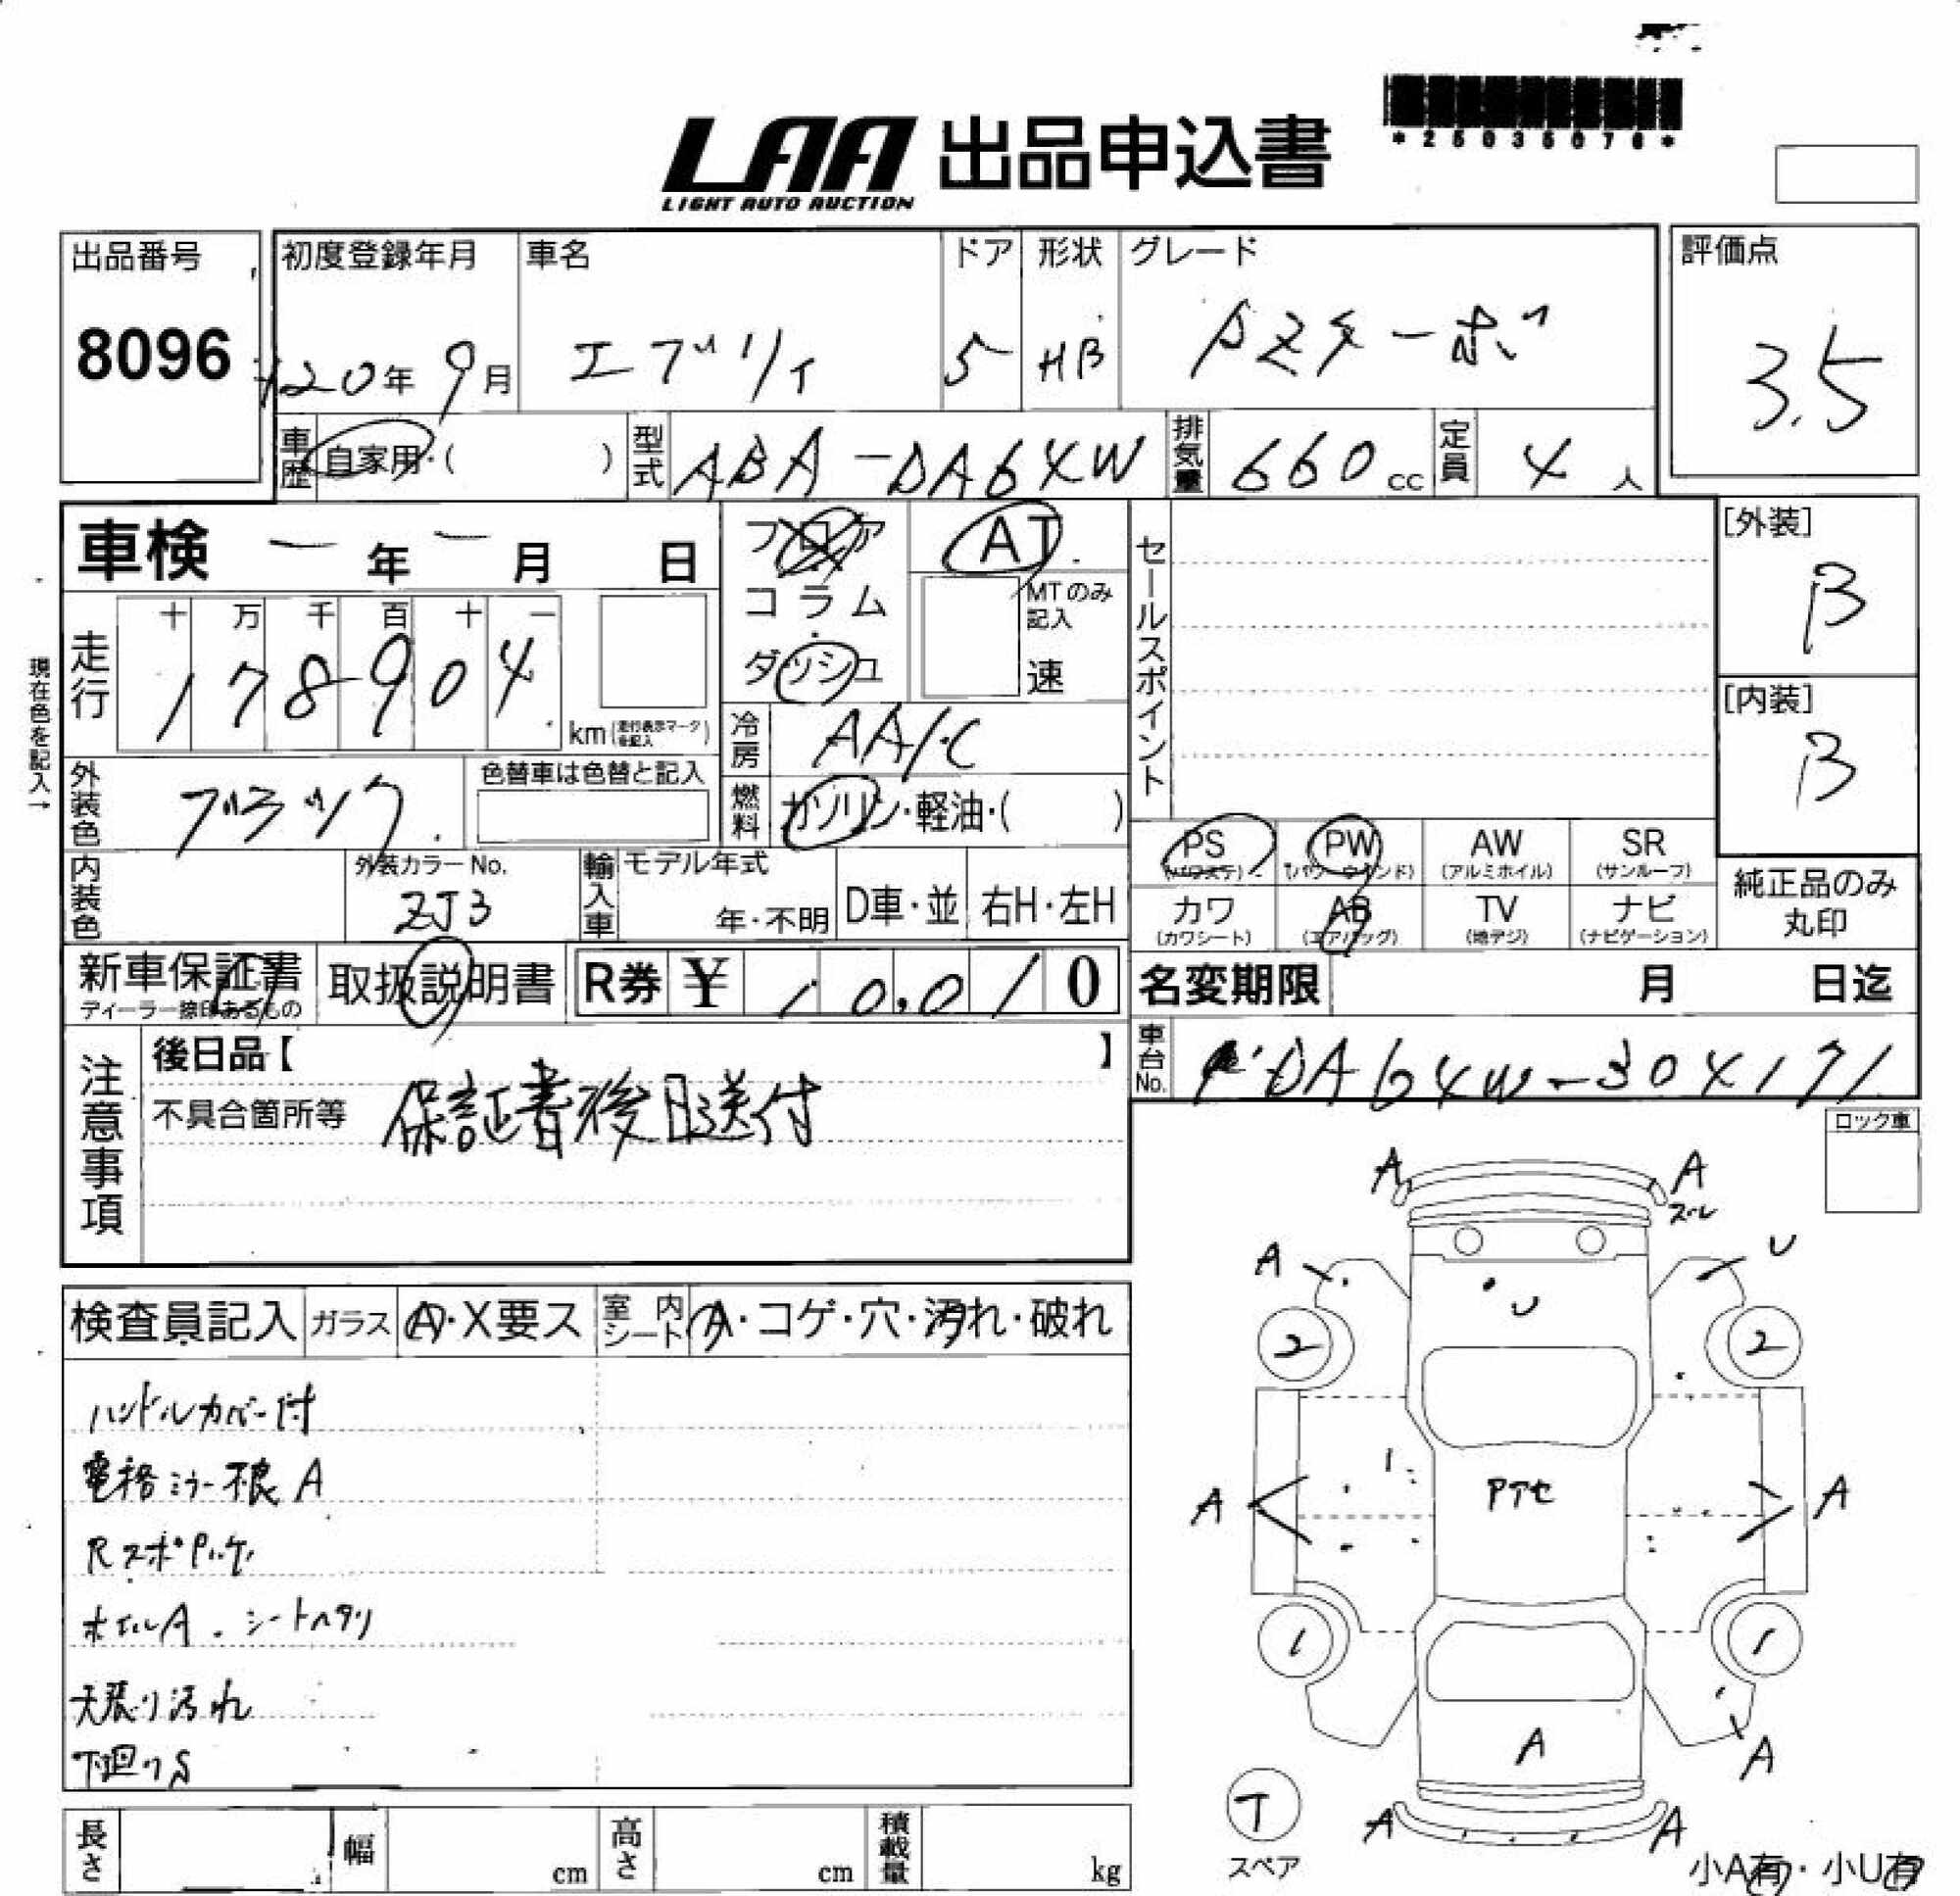 *25035076*
LAA 出品申込書
LIGHT AUTO AUCTION
出品番号
8096
初度登録年月
H20年 9月
車名
エブリィ
ドア
5
形状
HB
グレード
PZターボ
評価点
3.5
車歴
自家用・( )
型式
ABA-DA64W
排気量
660 cc
定員
4 人
車検 ー 年 ー 月 日
フロア
コラム
ダッシュ
AT
MTのみ記入
速
セールスポイント
[外装]
B
[内装]
B
現在色を記入→
走行
十 万 千 百 十 一
1 7 8 9 0 4
km (走行表示マークを記入)
冷房
AA/C
燃料
ガソリン・軽油・( )
外装色
ブラック
色替車は色替と記入
内装色
外装カラーNo.
ZJ3
輸入車
モデル年式
年・不明
D車・並
右H・左H
PS
(パワステ)
PW
(パワーウインド)
AW
(アルミホイル)
SR
(サンルーフ)
カワ
(カワシート)
AB
(エアバッグ)
TV
(地デジ)
ナビ
(ナビゲーション)
純正品のみ
丸印
新車保証書
ディーラー捺印あるもの
取扱説明書
R券 ¥ 10,010
名変期限 月 日迄
車台No.
DA64W-304171
注意事項
後日品【 】
不具合箇所等 保証書後日送付
ロック車
検査員記入
ガラス
A・X要ス
室内シート
A・コゲ・穴・汚れ・破れ
ハンドルカバー付
電格ミラー不良 A
Rスポハケ
ホイルA. シートヘタリ
天張り汚れ
下廻りS
A
A
スレ
A
U
U
2
2
A
A
Pアセ
1
1
A
A
A
A
T
スペア
小A有・小U有
長さ
幅
cm
高さ
cm
積載量
kg